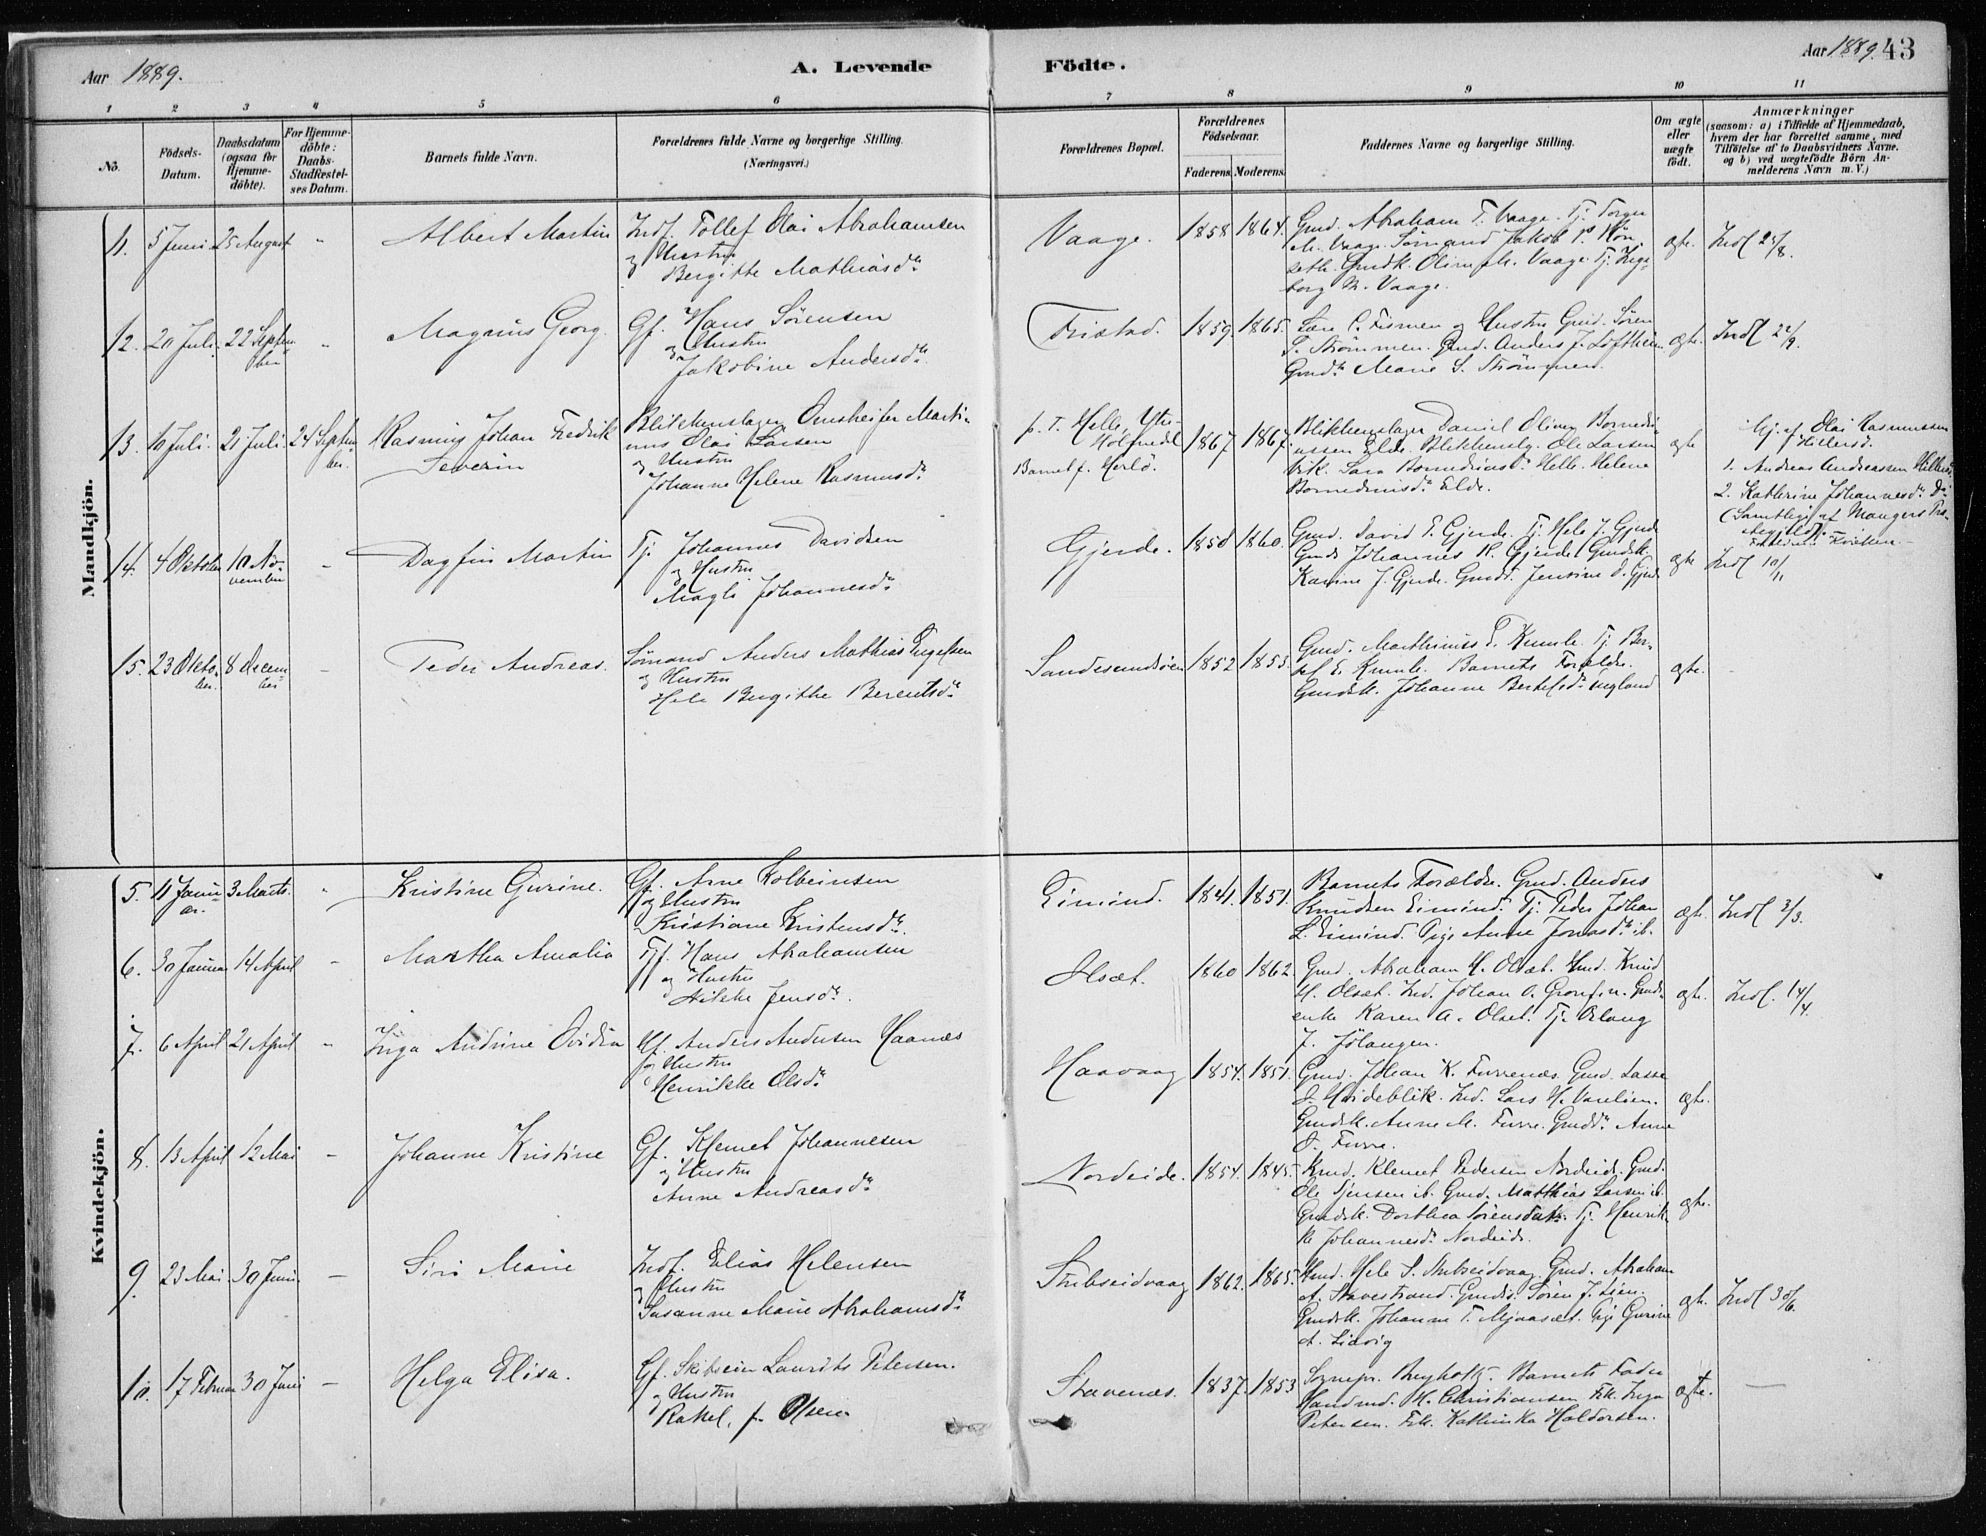 Aar 1889.
A. Levende Födte.
Aar 1889. 43
1 2 3 4 5 6 7 8 9 10 11
No.
Födsels-
Datum.
Daabsdatum
(ogsaa for
Hjemme-
döbte).
For Hjemme-
döbte:
Daabs-
Stadfæstel-
ses Datum.
Barnets fulde Navn.
Forældrenes fulde Navne og borgerlige Stilling.
(Næringsvei.)
Forældrenes Bopæl.
Forældrenes
Födselsaar.
Faderens Moderens
Faddernes Navne og borgerlige Stilling.
Om ægte
eller
uægte
födt.
Anmærkninger
(saasom: a) i Tilfælde af Hjemmedaab,
hvem der har forrettet samme, med
Tilföielse af to Daabsvidners Navne.
og b) ved uægtefödte Börn An-
melderens Navn m. V.)
Mandkjön.
11. 5 Juni 25 August "
Albert Martin
Indf. Tollef Olai Abrahamsen
og Hustru
Bergitte Mathiasdr
Vaage.
1858 1864.
Gmd. Abraham T. Vaage. Tj.
M. Vaage. Sömand Jakob
Gmdk. M. Vaage. Tj. Inge-
borg M. Vaage.
ægte. Indl 25/8.
12. 20 Juli 22 Septem-
ber "
Magnus Georg.
Gf. Hans Sörensen
og Hustru
Jakobine Andersdr
Tristad.
1859. 1865.
og Hustru Gmd. Sören
S. Strömmen. Gmd. Anders J.
Gmdr Marie S. Strömmen.
ægte. Indl 22/9.
13. 10 Juli. 21 Juli. 24 Septem-
ber.
Rasmus Johan Fredrik
Severin
Blikkenslager Omstreifer Marti-
nus Olai Larsen
og Hustru
Johanne Helene Rasmusdr
p. T. Helle, Ytre
Holmedal
Barnet f. Herlö.
1867 1867.
Blikkenslager Daniel Oliver
Elde. Blikkenslg. Ole Larsen
Vik. Sara Helle. Helene
Elde.
ægte
Hj. af Olai Rasmussen
1. Andreas Andreassen
2. Kathrine Johannesdr Do
(Samtlige af Mangers Præ-
stegjeld).
14. 4 Oktober 10 No-
vember -
Dagfin Martin
Tj. Johannes Davidsen
og Hustru
Magli Johannesdr
Gjerde.
1850 1860.
Gmd. David T. Gjerde. Tj. Hele J. Gjerde
Gmd. Johannes H. Gjerde. Gmdsk.
Karine J. Gjerde. Gmdd. Jensine D. Gjerde
ægte Indl 10/11
15. 23 Okto-
ber. 8 Decem-
ber -
Peder Andreas.
Sömand Anders Mathias Engelsen
og Hustru
Hele Bergithe Berentsdr
Sandesundsöen
1852 1853.
Gmd. Mathinus E. Kumle. Tj. Ber-
E. Kumle. Barnets Forældre.
Gmdsk. Johanne Bertelsdr
ægte. -
Kvindekjön.
5. 11 Janu-
ar. 3 Marts. "
Kristine Gurine.
Gf. Arne Kolbeinsen
og Hustru
Kristiane Kristensdr
Eimind.
1841. 1851.
Barnets Forældre. Gmd. Anders
Knudsen Eimind. Tj. Peder Johan
L. Eimind. Pige Anne Jonasdr ib.
ægte. Indl 3/3.
6. 30 Januar 14 April -
Martha Amalia
Tj. Hans Abrahamsen
og Hustru
Jensdr.
Olsæt.
1860 1862.
Gmd. Abraham H. Olsæt. Gmd. Knud
H. Olsæt. Ind. Johan A. Gmds-
enke Karen A. Olset. Tj. Oslaug
J. Jölangen.
ægte. Indl. 14/4.
7. 6 April 21 April "
Inga Andrine Ovidia
Gf. Anders Andersen Haanæs
og Hustru
Henrikke Olsdr
Haavaag
1854. 1851.
Gmd. Johan K. Furrenæs. Gmd. Lasse
J. Hvideblik. Ind. Lars H. Varelien.
Gmdsk. Anne M. Furre. Gmddr Anne
O. Furre.
ægte.
8. 13 April 12 Mai -
Johanne Kristine
Gf. Klemet Johannesen
og Hustru
Anne Andreasdr
Nordeide.
1854. 1845.
Klemet Pedersen Nordeide. Gmd.
Ole Jensen ib. Gmd. Matthias Larsen ib.
Gmdsk. Dorthea Sörensdatr. Tj. Henrik-
ke Johannesdr Nordeide.
ægte.
9. 23 Mai 30 Juni. -
Siri Marie
Indf. Elias Helensen
og Hustru
Susanne Marie Abrahamsdr
Stubseidvaag
1862. 1865.
Gmd. Hele S. Stubseidvaag. Gmd. Abraham
A. Stavestrand. Gmdss. Sören J. Lien.
Gmdsk. Johanne T. Mjaasæt. Pige Gurine
A. Lidvig
ægte. Indl 30/6.
10. 17 Februar 30 Juni -
Helga Elisa.
Gf. Skibseier Laurits Petersen.
og Hustru
Rakel, f. Olsen
Stavenæs.
1837. 1853
Sognepr. Buyholtz. Barnets Fader
Handmd. H. Christiansen Frk. Inga
Petersen. Frk. Kathinka Haldorsen.
ægte. —